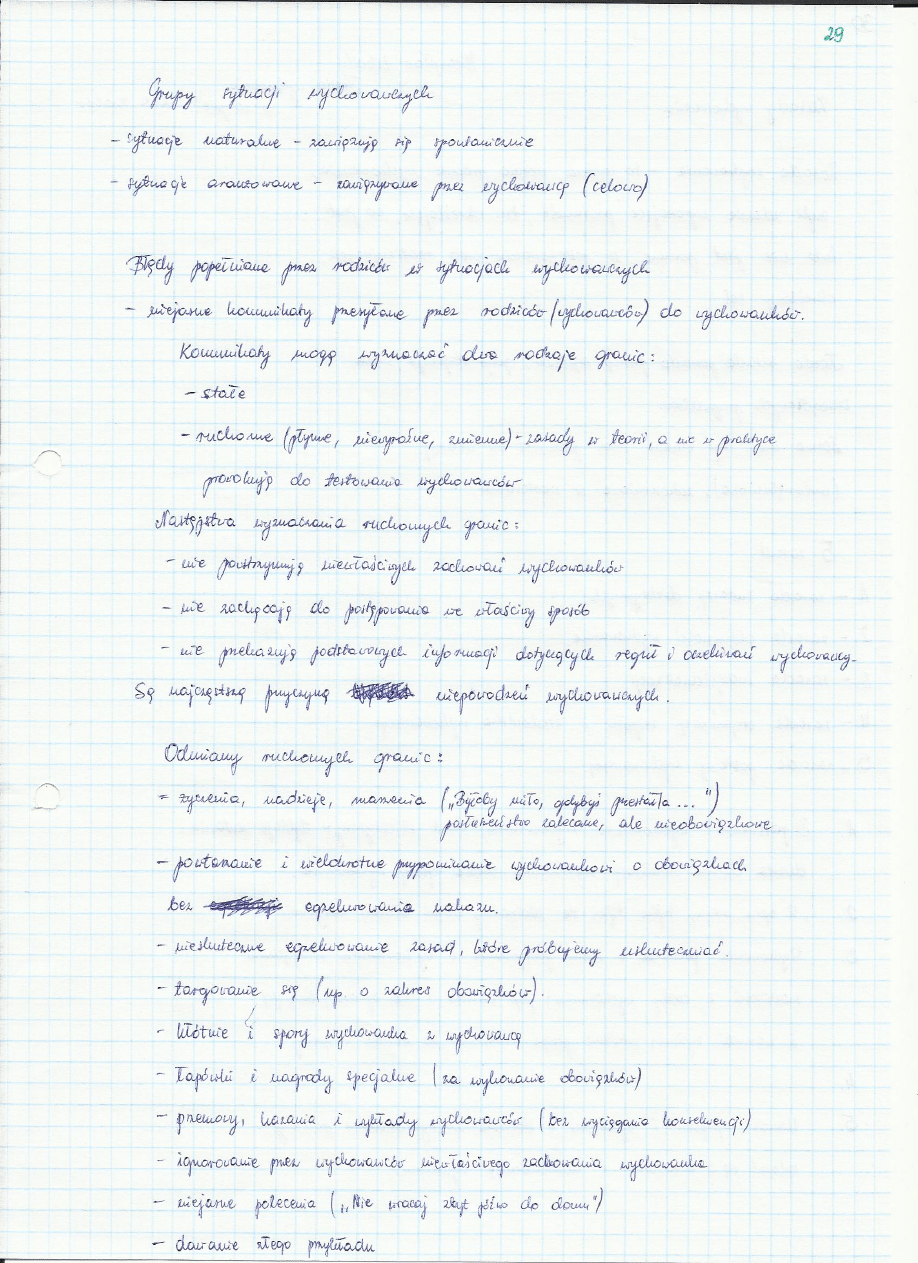 29
Grupy sytuacji wychowawczych
- sytuacje naturalne - zawiązują się spontanicznie
- sytuacje aranżowane - zawiązywane przez wychowawcę (celowo)
Błędy popełniane przez rodziców w sytuacjach wychowawczych
- niejasne komunikaty przesyłane przez rodziców (wychowawców) do wychowanków.
Komunikaty mogą wyznaczać dwa rodzaje granic:
- stałe
- ruchome (płynne, niewyraźne, zmienne) - zasady w teorii, a nie w praktyce
prowokują do testowania wychowawców
Następstwa wyznaczania ruchomych granic:
- nie powstrzymują niewłaściwych zachowań wychowanków
- nie zachęcają do postępowania we właściwy sposób
- nie przekazują podstawowych informacji dotyczących reguł i oczekiwań wychowawcy.
Są najczęstszą przyczyną niepowodzeń wychowawczych.
Odmiany ruchomych granic:
- życzenia, nadzieje, marzenia („Byłoby miło, gdybyś przestała...")
posłuszeństwo zalecane, ale nieobowiązkowe
- powtarzanie i wielokrotne przypominanie wychowankowi o obowiązkach
bez egzekwowania nakazu.
- nieskuteczne egzekwowanie zasad, które próbujemy uskuteczniać.
- targowanie się (np. o zakres obowiązków).
- kłótnie i spory wychowanka z wychowawcą
- łapówki i nagrody specjalne (za wykonanie obowiązków)
- przemowy, kazania i wykłady wychowawców (bez wyciągania konsekwencji)
- ignorowanie przez wychowawców niewłaściwego zachowania wychowanka
- niejasne polecenia („Nie wracaj zbyt późno do domu")
- dawanie złego przykładu